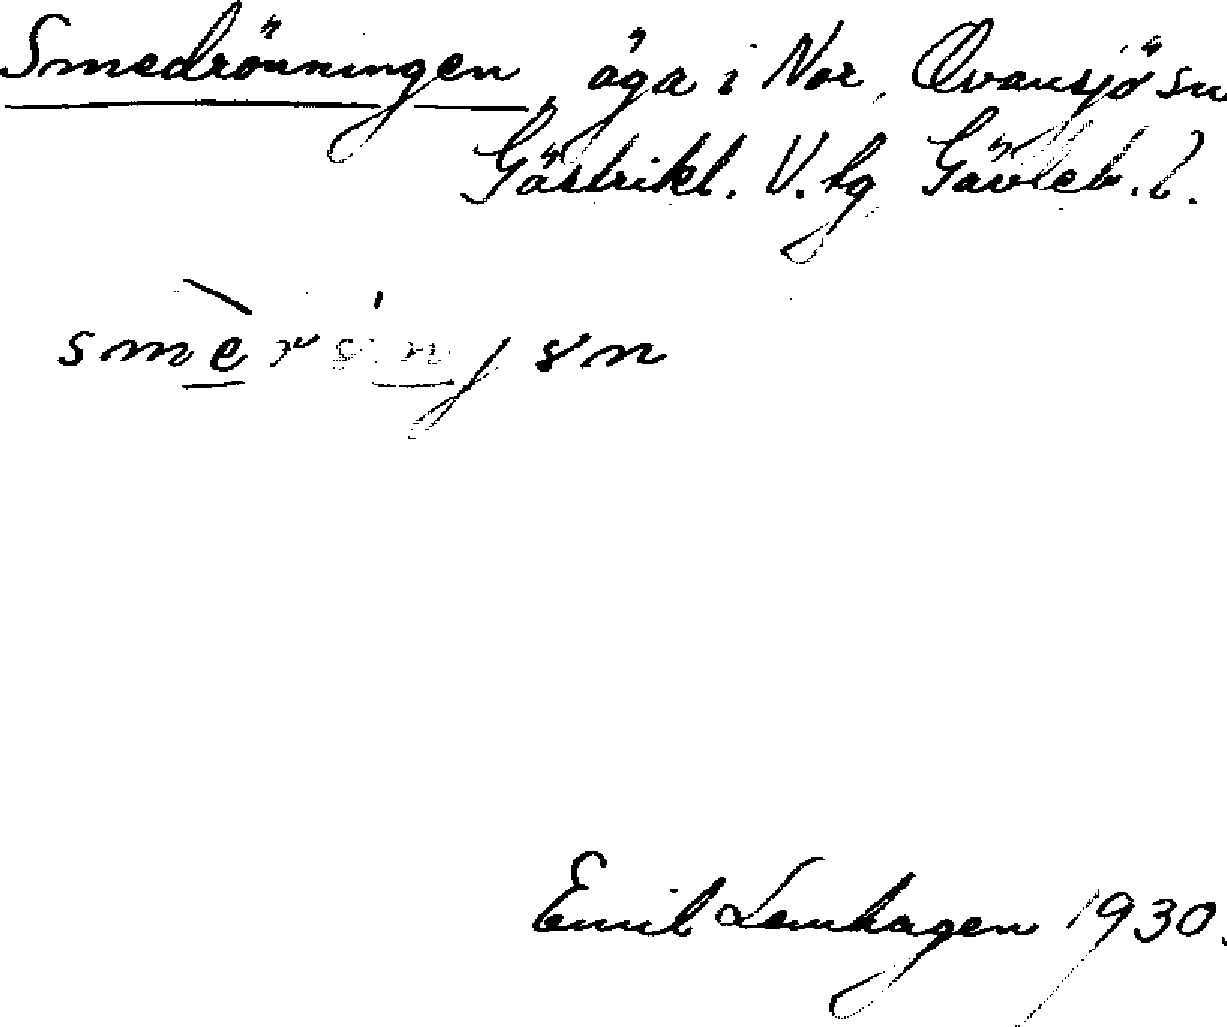 Smedrönningen, äga i Nor, Ovansjö sn
Gästrikl. V. tg Gävleb. l.
Emil Lemhagen 1930.